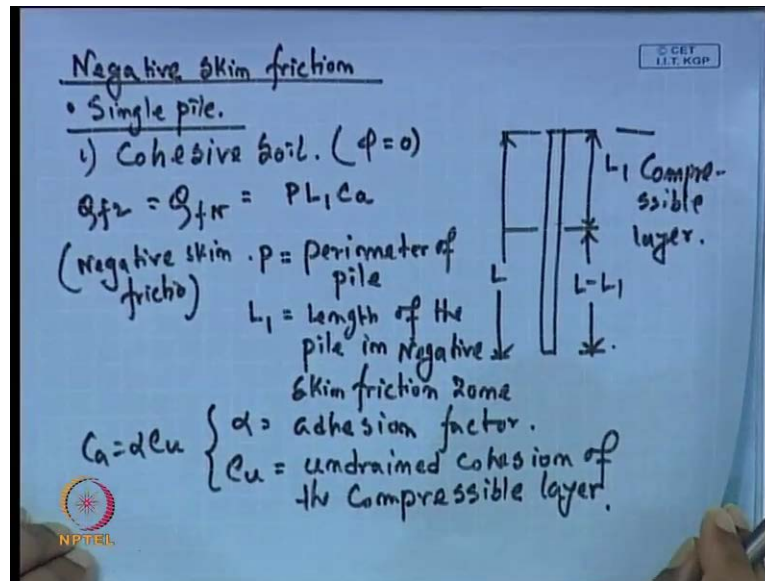 Negative skin friction
© CET
I.I.T. KGP
• Single pile.
1) Cohesive Soil. (φ=0)
Qf2 = QfN = PL1Ca
(Negative skin frictio)
P = perimeter of pile
L1 = Length of the pile in Negative skin friction zone
Ca = αCu
α = adhesion factor.
Cu = undrained cohesion of the compressible layer.
L1
Compre-
ssible
layer.
L
L-L1
NPTEL